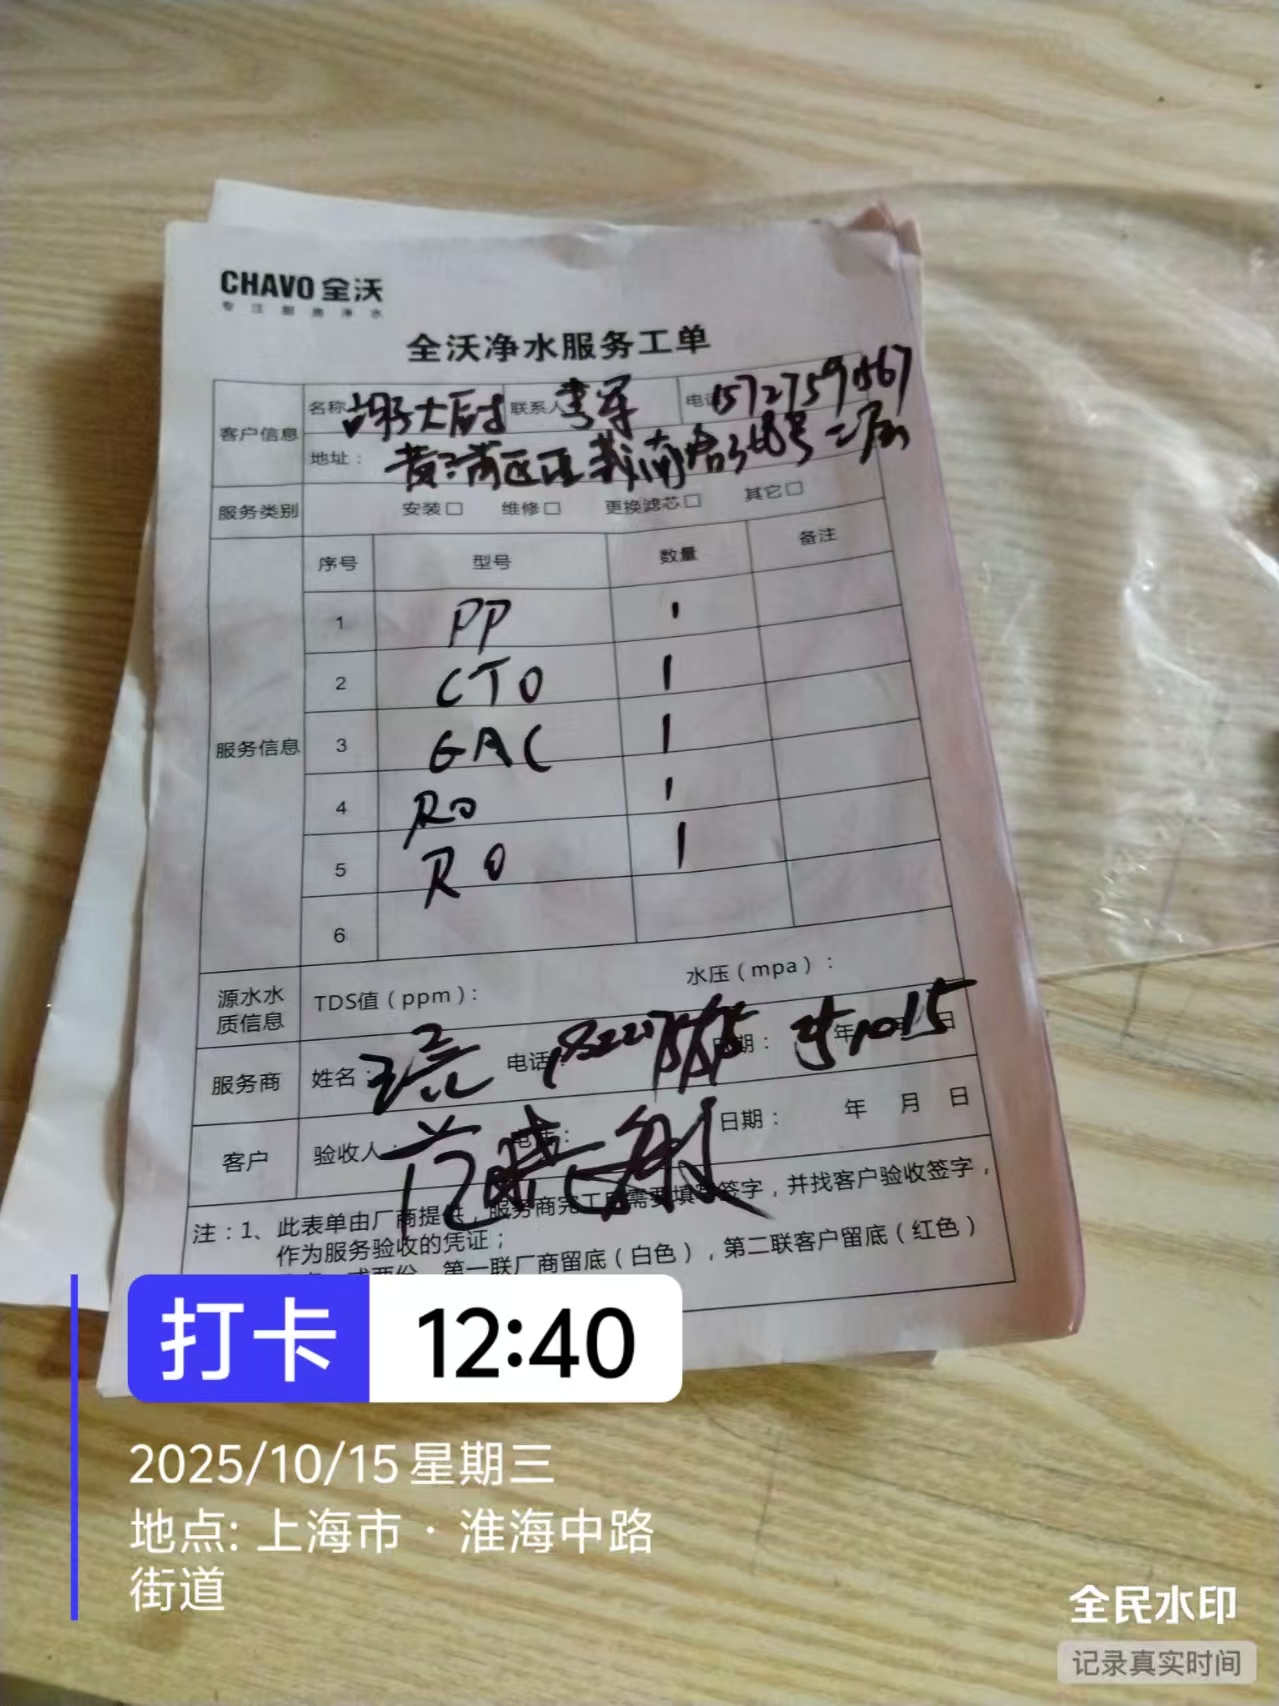 CHAVO 全沃
专注厨房净水
全沃净水服务工单
客户信息 名称 胡子大厨 联系人 李军 电话
地址： 黄浦区 二层
服务类别 安装□ 维修□ 更换滤芯□ 其它□
服务信息 序号 型号 数量 备注
1 PP 1
2 CTO 1
3 GAC 1
4 RO 1
5 RO 1
6
源水水质信息 TDS值（ppm）： 水压（mpa）：
服务商 姓名： 电话： 日期： 年 10 月 15 日
客户 验收人： 电话： 日期： 年 月 日
注：1、此表单由厂商提供，服务商完工后需要填写签字，并找客户验收签字，
作为服务验收的凭证；
式两份，第一联厂商留底（白色），第二联客户留底（红色）
打卡 12:40
2025/10/15 星期三
地点: 上海市 · 淮海中路
街道
全民水印
记录真实时间